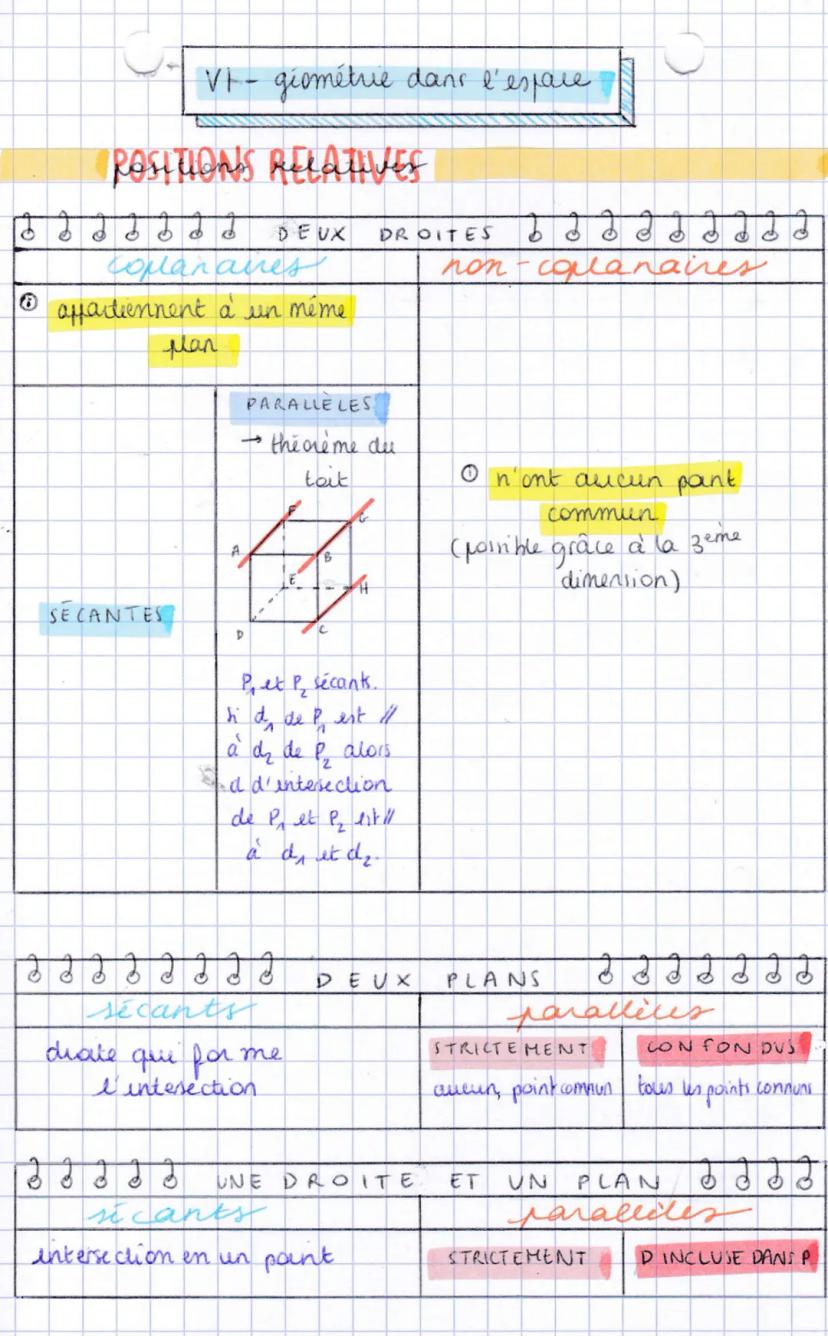 VI - géométrie dans l'espace
POSITIONS RELATIVES
positions relatives
DEUX DROITES
coplanaires
non-coplanaires
appartiennent à un même
plan
PARALLÈLES
→ théorème du
toit
F
G
A
B
E
H
D
C
SÉCANTES
n'ont aucun point
commun
(possible grâce à la 3ème
dimension)
P1 et P2 sécants.
Si d1 de P1 est //
à d2 de P2 alors
d d'intersection
de P1 et P2 est //
à d1 et d2.
DEUX PLANS
sécants
parallèles
droite qui forme
l'intersection
STRICTEMENT
aucun, point commun
CONFONDUS
tous les points communs
UNE DROITE ET UN PLAN
sécants
parallèles
intersection en un point
STRICTEMENT
D INCLUSE DANS P